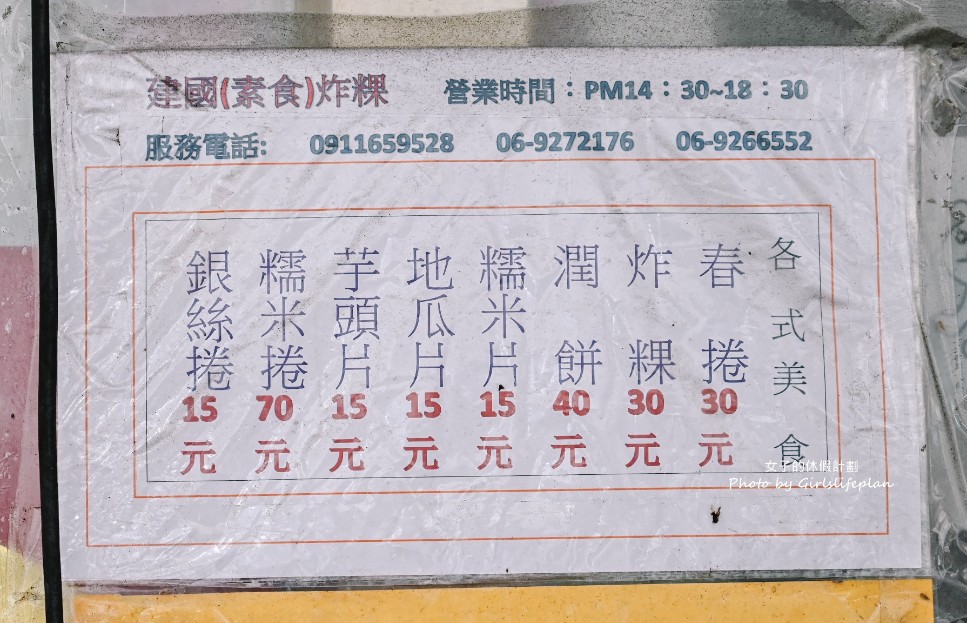 建國(素食)炸粿 營業時間：PM14：30~18：30
服務電話: 0911659528 06-9272176 06-9266552
各式美食
春捲 30元
炸粿 30元
潤餅 40元
糯米片 15元
地瓜片 15元
芋頭片 15元
糯米捲 70元
銀絲捲 15元
女子的休假計劃
Photo by Girlslifeplan